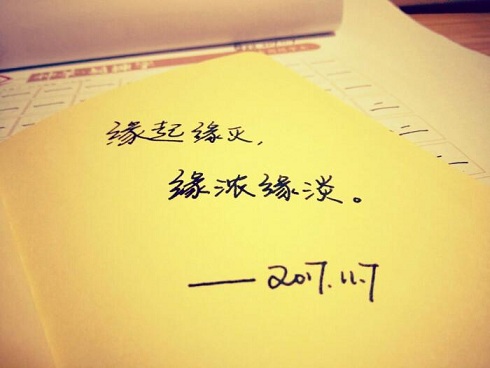 缘起缘灭，
缘浓缘淡。
——2017.11.7